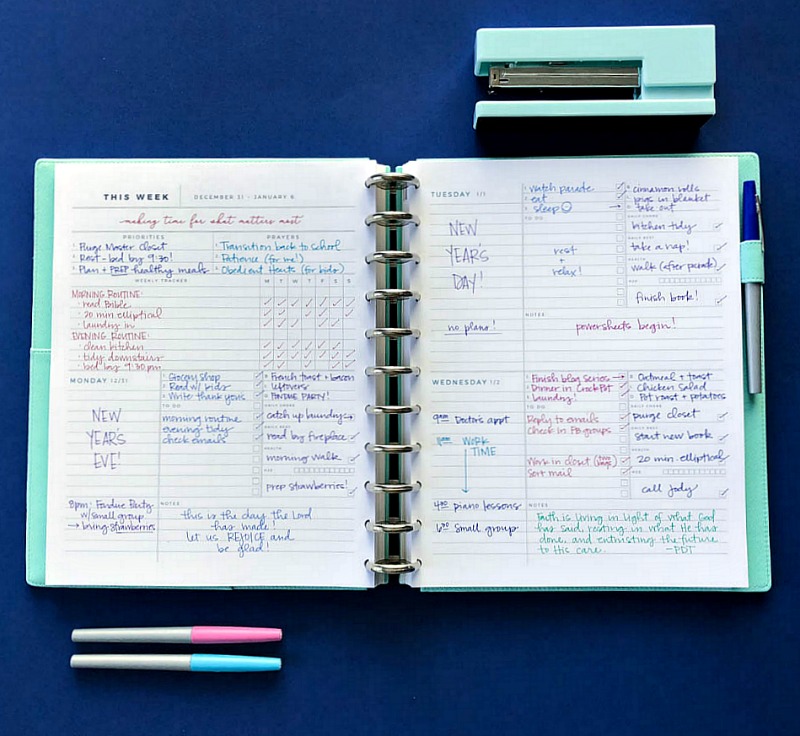 THIS WEEK
DECEMBER 31 - JANUARY 6
making time for what matters most
PRIORITIES
PRAYERS
Purge Master Closet
Rest - bed by 9:30!
Plan + PREP healthy meals
Transition back to school
Patience (for me!)
Obedient Hearts (for kids)
WEEKLY TRACKER
M T W T F S S
MORNING ROUTINE:
· read Bible
· 20 min elliptical
· laundry in
EVENING ROUTINE:
· clean kitchen
· tidy downstairs
· bed by 9:30pm
MONDAY 12/31
NEW
YEAR'S
EVE!
8pm: Fondue Party
w/ small group
→ bring strawberries
Grocery shop
Read w/ kids
Write thank yous
TO DO
morning routine
evening tidy
check emails
French toast + bacon
leftovers
FONDUE PARTY!
DAILY CHORE
catch up laundry
read by fireplace
HEALTH
morning walk
prep strawberries!
NOTES
this is the day the Lord
has made!
let us REJOICE and
be glad!
TUESDAY 1/1
NEW
YEAR'S
DAY!
no plans!
watch parade
eat
sleep ☺
TO DO
rest
+
relax!
cinnamon rolls
pigs in blanket
take out
DAILY CHORE
kitchen tidy
take a nap!
HEALTH
walk (after parade)
finish book!
NOTES
powersheets begin!
WEDNESDAY 1/2
9am Doctor's appt
WORK
TIME
4:00 piano lessons
6:30 small group
Finish blog series →
Dinner in CrockPot
Laundry!
TO DO
Reply to emails
Check in FB groups
Work in closet (two bags)
Sort mail
Oatmeal + toast
Chicken Salad
Pot roast + potatoes
DAILY CHORE
purge closet
start new book
HEALTH
20 min elliptical
call Jody
NOTES
Faith is living in light of what God
has said, resting in what He has
done, and entrusting the future
to His care. -PDT